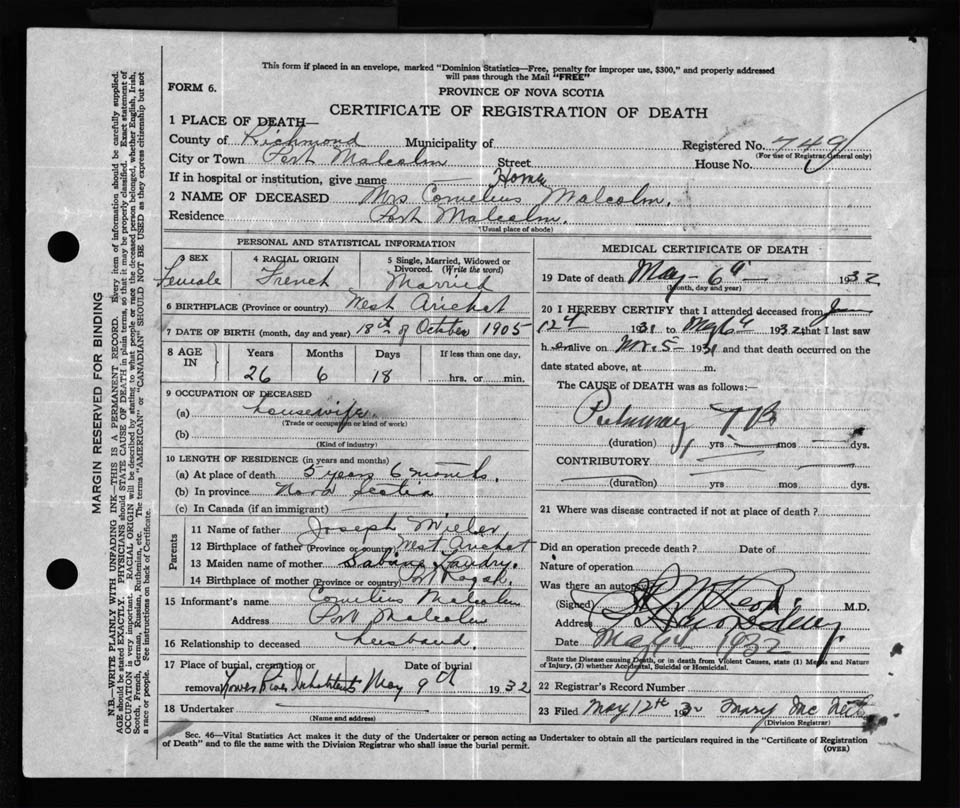 This form if placed in an envelope, marked "Dominion Statistics—Free, penalty for improper use, $300," and properly addressed
will pass through the Mail "FREE"
FORM 6.
PROVINCE OF NOVA SCOTIA
CERTIFICATE OF REGISTRATION OF DEATH
1 PLACE OF DEATH—
County of Richmond Municipality of Registered No. 749
(For use of Registrar General only)
City or Town Port Malcolm Street House No.
If in hospital or institution, give name Home
2 NAME OF DECEASED Mrs Cornelius Malcolm.
Residence Port Malcolm.
(Usual place of abode)
PERSONAL AND STATISTICAL INFORMATION
3 SEX 4 RACIAL ORIGIN 5 Single, Married, Widowed or Divorced. (Write the word)
Female French Married
6 BIRTHPLACE (Province or country) West Arichat
7 DATE OF BIRTH (month, day and year) 18th of October 1905
8 AGE IN Years Months Days If less than one day,
26 6 18 hrs. or min.
9 OCCUPATION OF DECEASED
(a) housewife.
(Trade or occupation or kind of work)
(b)
(Kind of industry)
10 LENGTH OF RESIDENCE (in years and months)
(a) At place of death 5 years 6 months.
(b) In province Nova Scotia
(c) In Canada (if an immigrant)
Parents
11 Name of father Joseph
12 Birthplace of father (Province or country) West Arichat
13 Maiden name of mother Landry.
14 Birthplace of mother (Province or country)
15 Informant's name Cornelius Malcolm
Address Port Malcolm
16 Relationship to deceased husband.
17 Place of burial, cremation or Date of burial
removal Lower River Inhabitants May 9th 1932
18 Undertaker
(Name and address)
MEDICAL CERTIFICATE OF DEATH
19 Date of death May 6th 1932
(Month, day and year)
20 I HEREBY CERTIFY that I attended deceased from
12th 1931 to May 6th 1932 that I last saw
her alive on Nov. 5 1931 and that death occurred on the
date stated above, at m.
The CAUSE of DEATH was as follows:—
Pulmonary TB
(duration) yrs mos dys.
CONTRIBUTORY
(duration) yrs. mos dys.
21 Where was disease contracted if not at place of death?
Did an operation precede death? Date of
Nature of operation
Was there an autopsy
(Signed) M.D.
Address
Date May 1932
State the Disease causing Death, or in death from Violent Causes, state (1) Means and Nature
of Injury, (2) whether Accidental, Suicidal or Homicidal.
22 Registrar's Record Number
23 Filed May 12th 1932 Mary
(Division Registrar)
Sec. 46—Vital Statistics Act makes it the duty of the Undertaker or person acting as Undertaker to obtain all the particulars required in the "Certificate of Registration
of Death" and to file the same with the Division Registrar who shall issue the burial permit.
(OVER)
MARGIN RESERVED FOR BINDING
N.B.—WRITE PLAINLY WITH UNFADING INK—THIS IS A PERMANENT RECORD. Every item of information should be carefully supplied.
AGE should be stated EXACTLY. PHYSICIANS should STATE CAUSE OF DEATH in plain terms, so that it may be properly classified. Exact statement of
OCCUPATION is very important. RACIAL ORIGIN will be described by stating to what people or race the deceased person belonged, whether English, Irish,
Scotch, French, German, Russian, Ruthenian, etc. The terms "AMERICAN" or "CANADIAN" SHOULD NOT BE USED as they express citizenship but not
a race or people. See instructions on back of Certificate.